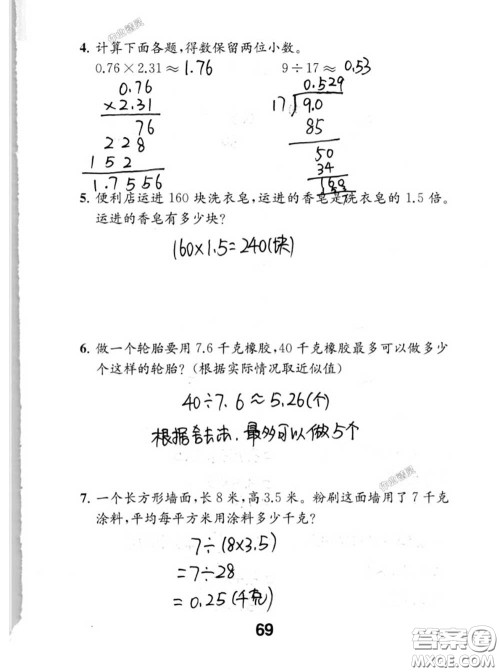 4. 计算下面各题,得数保留两位小数。
0.76×2.31≈1.76 9÷17≈0.53
0.76
×2.31
76
228
152
1.7556
0.529
17 9.0
85
50
34
5. 便利店运进 160 块洗衣皂,运进的香皂是洗衣皂的 1.5 倍。
运进的香皂有多少块?
160×1.5=240(块)
6. 做一个轮胎要用 7.6 千克橡胶,40 千克橡胶最多可以做多少
个这样的轮胎?(根据实际情况取近似值)
40÷7.6≈5.26(个)
根据去尾法,最多可以做5个
7. 一个长方形墙面,长 8 米,高 3.5 米。粉刷这面墙用了 7 千克
涂料,平均每平方米用涂料多少千克?
7÷(8×3.5)
=7÷28
=0.25(千克)
69
答案圈
MXQE.COM